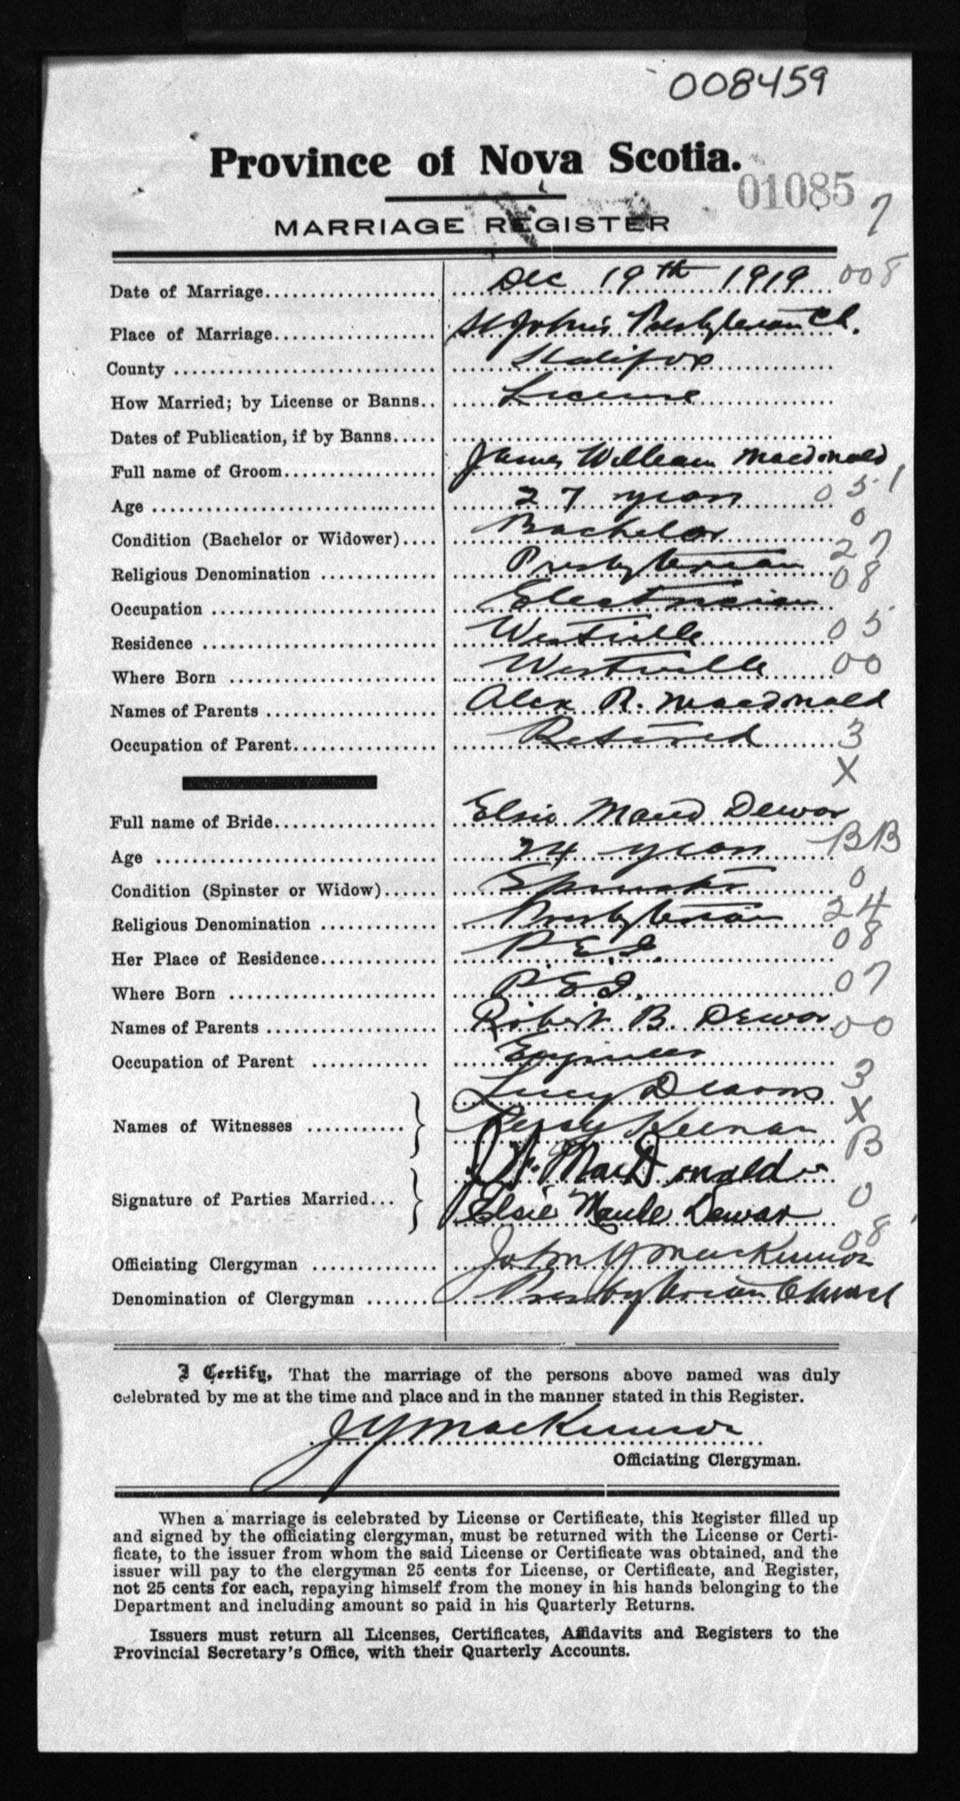 008459
Province of Nova Scotia.
01085
7
MARRIAGE REGISTER
Date of Marriage.................... Dec 19th 1919 008
Place of Marriage................... St John's Presbyterian Ch.
County .............................. Halifax
How Married; by License or Banns.. License
Dates of Publication, if by Banns.....
Full name of Groom.................. James William Macdonald
Age .................................. 27 years 051
Condition (Bachelor or Widower).... Bachelor 0
Religious Denomination ............. Presbyterian 27
Occupation .......................... Electrician 08
Residence ........................... Westville 05
Where Born ........................ Westville 00
Names of Parents .................... Alex R. Macdonald
Occupation of Parent................. Retired 3
X
Full name of Bride................... Elsie Maud Dewar
Age .................................. 24 years BB
Condition (Spinster or Widow)...... Spinster 0
Religious Denomination ............. Presbyterian 24
Her Place of Residence.............. P.E.I. 08
Where Born ........................ P.E.I. 07
Names of Parents .................... Robert B. Dewar 00
Occupation of Parent ............. Engineer
Names of Witnesses ........... Lucy 3
Percy Keenan X
B
Signature of Parties Married... J W. MacDonald
Elsie Maude Dewar 0
08
Officiating Clergyman .............. John Y MacKinnon
Denomination of Clergyman ........ Presbyterian Church
I Certify, That the marriage of the persons above named was duly
celebrated by me at the time and place and in the manner stated in this Register.
J Y MacKinnon
Officiating Clergyman.
When a marriage is celebrated by License or Certificate, this Register filled up
and signed by the officiating clergyman, must be returned with the License or Certi-
ficate, to the issuer from whom the said License or Certificate was obtained, and the
issuer will pay to the clergyman 25 cents for License, or Certificate, and Register,
not 25 cents for each, repaying himself from the money in his hands belonging to the
Department and including amount so paid in his Quarterly Returns.
Issuers must return all Licenses, Certificates, Affidavits and Registers to the
Provincial Secretary's Office, with their Quarterly Accounts.